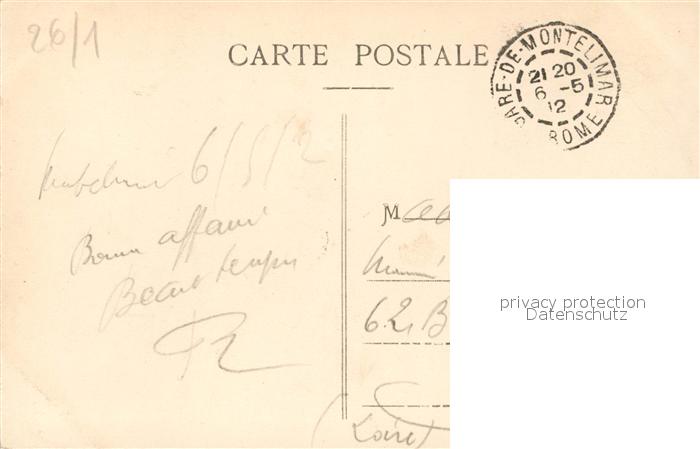 26/1
CARTE POSTALE
GARE-DE-MONTELIMAR
21 20
6 -5
12
DROME
Montelimar 6/5/12
Bonne affaire
Beau temps
M
62 B
(Loire)
privacy protection
Datenschutz